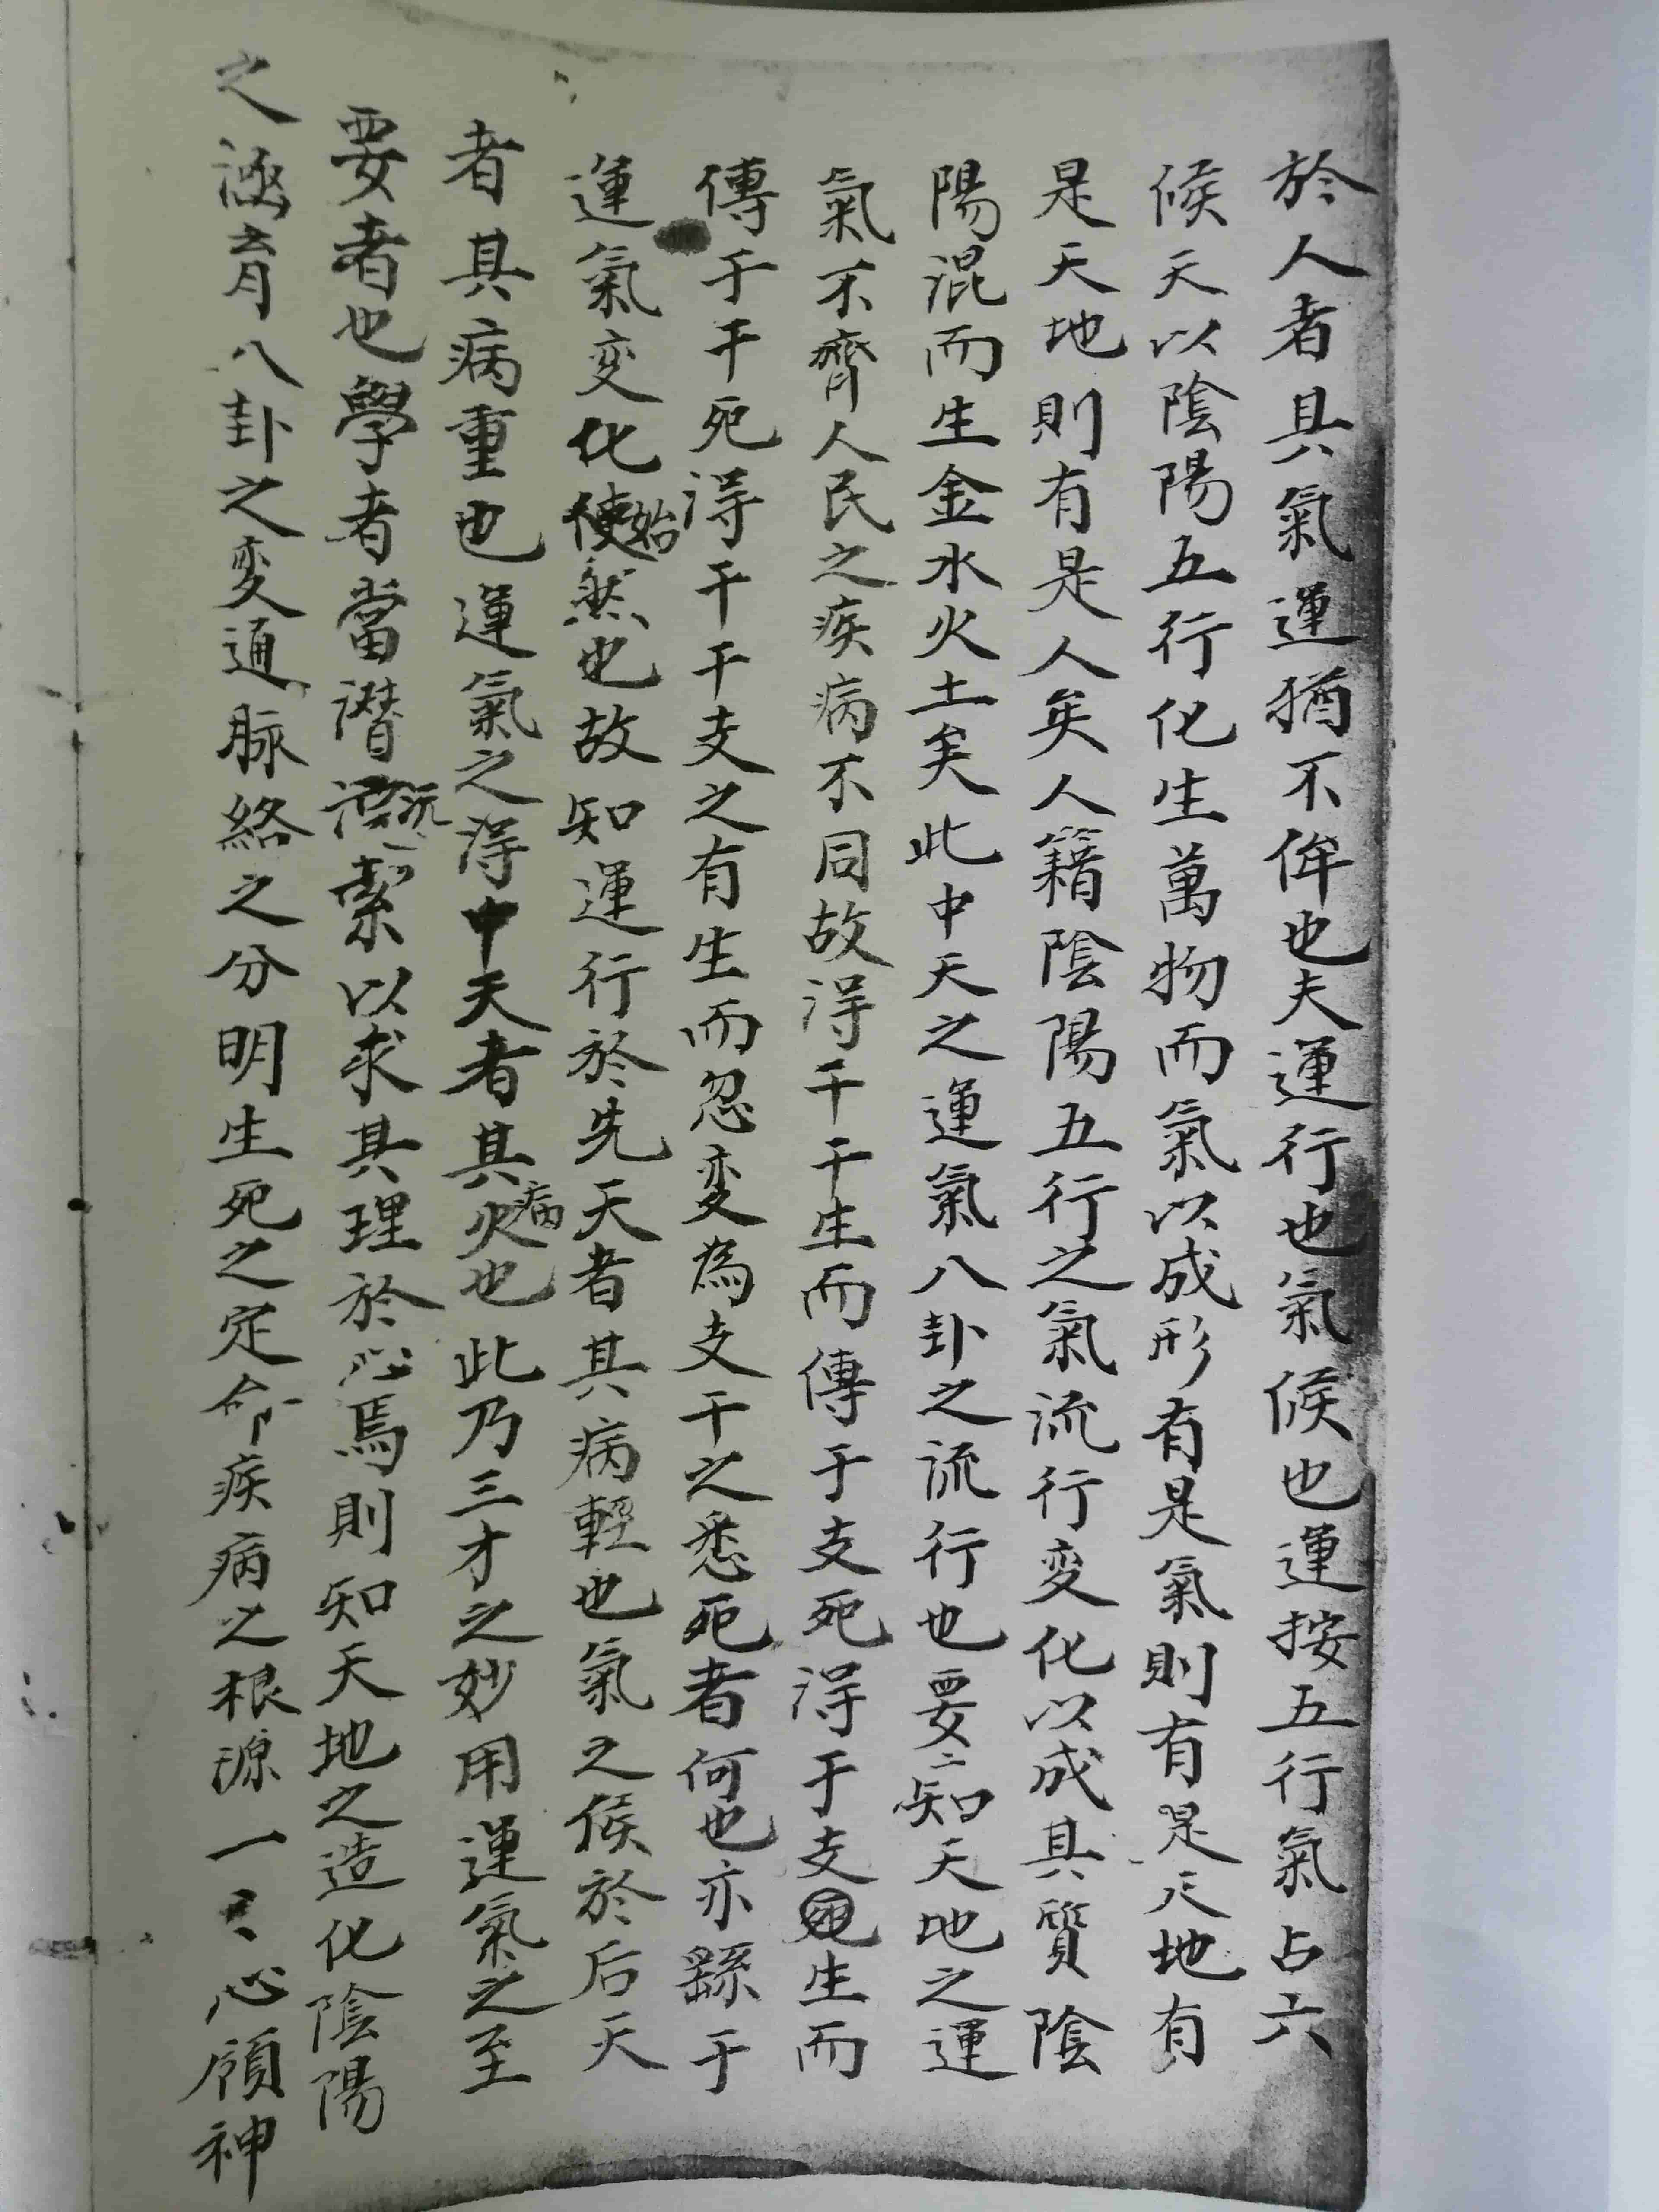 於人者具氣運猶不侔也夫運行也氣候也運按五行氣占六
候天以陰陽五行化生萬物而氣以成形有是氣則有是天地有
是天地則有是人矣人籍陰陽五行之氣流行变化以成其質陰
陽混而生金水火土矣此中天之運氣八卦之流行也要知天地之運
氣不齊人民之疾病不同故淂干干生而傳于支死淂于支生而
傳于干死淂干干支之有生而忽变為支干之悉死者何也亦繇于
運氣变化使始然也故知運行於先天者其病輕也氣之候於后天
者其病重也運氣之淂中天者其病也此乃三才之妙用運氣之至
要者也學者當潛沉索以求其理於心焉則知天地之造化陰陽
之涵育八卦之变通脉絡之分明生死之定命疾病之根源一々心領神